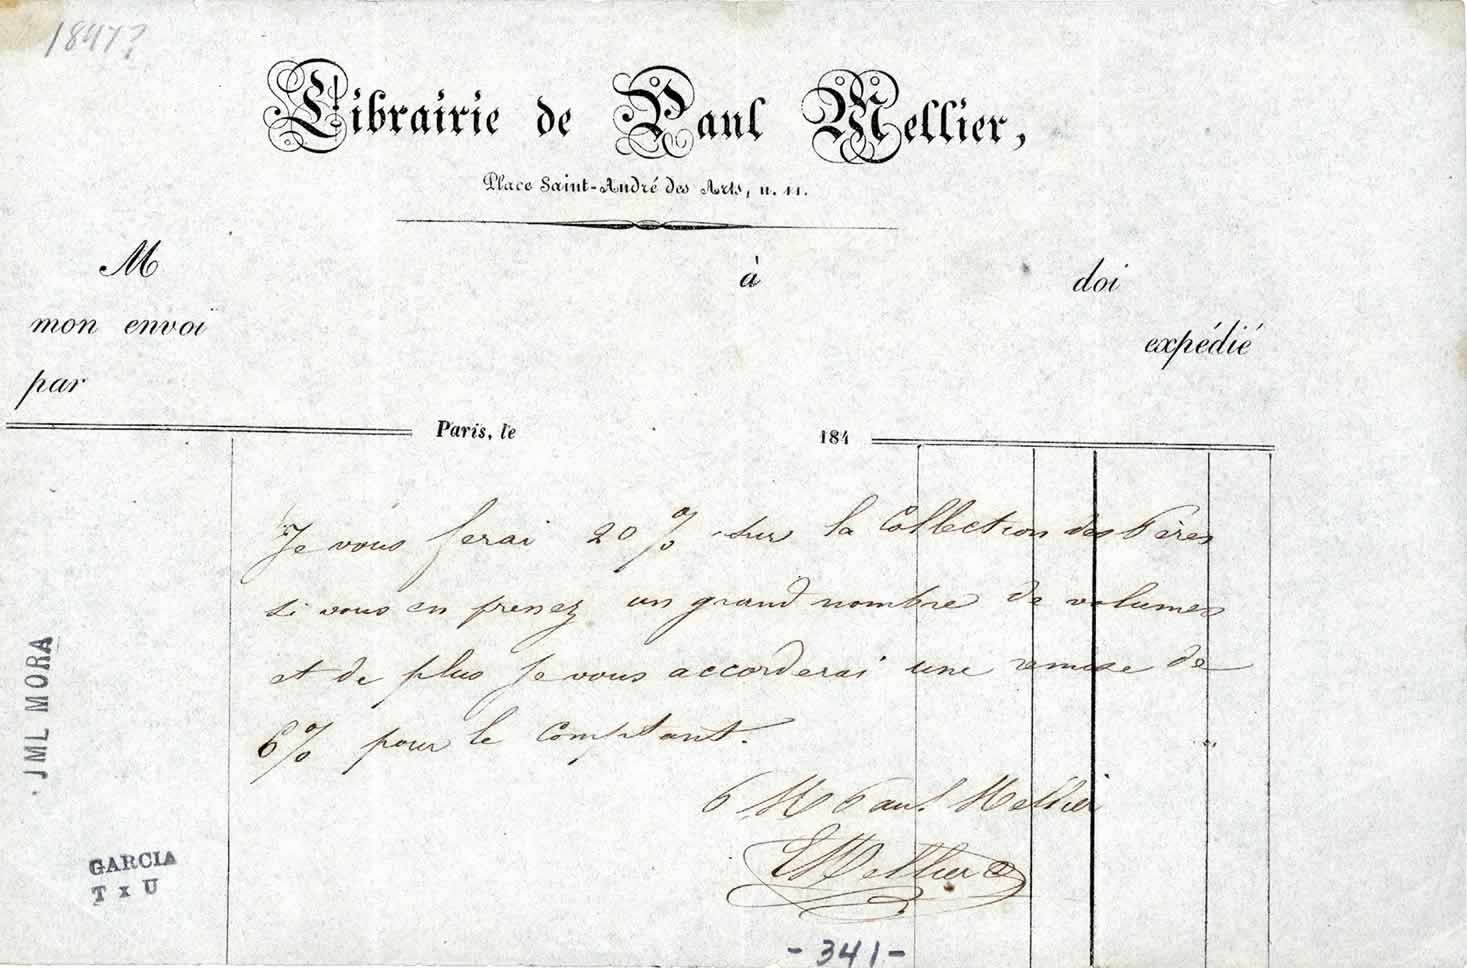 1847?
Librairie de Paul Mellier,
Place Saint-André des Arts, n. 11.
M à doi
mon envoi expédié
par
Paris, le 184
Je vous ferai 20 % sur la Collection des Pères
si vous en prenez un grand nombre de volumes
et de plus Je vous accorderai une remise de
6% pour le comptant.
P M Paul Mellier
EMellier
JML MORA
GARCIA
T x U
-341-